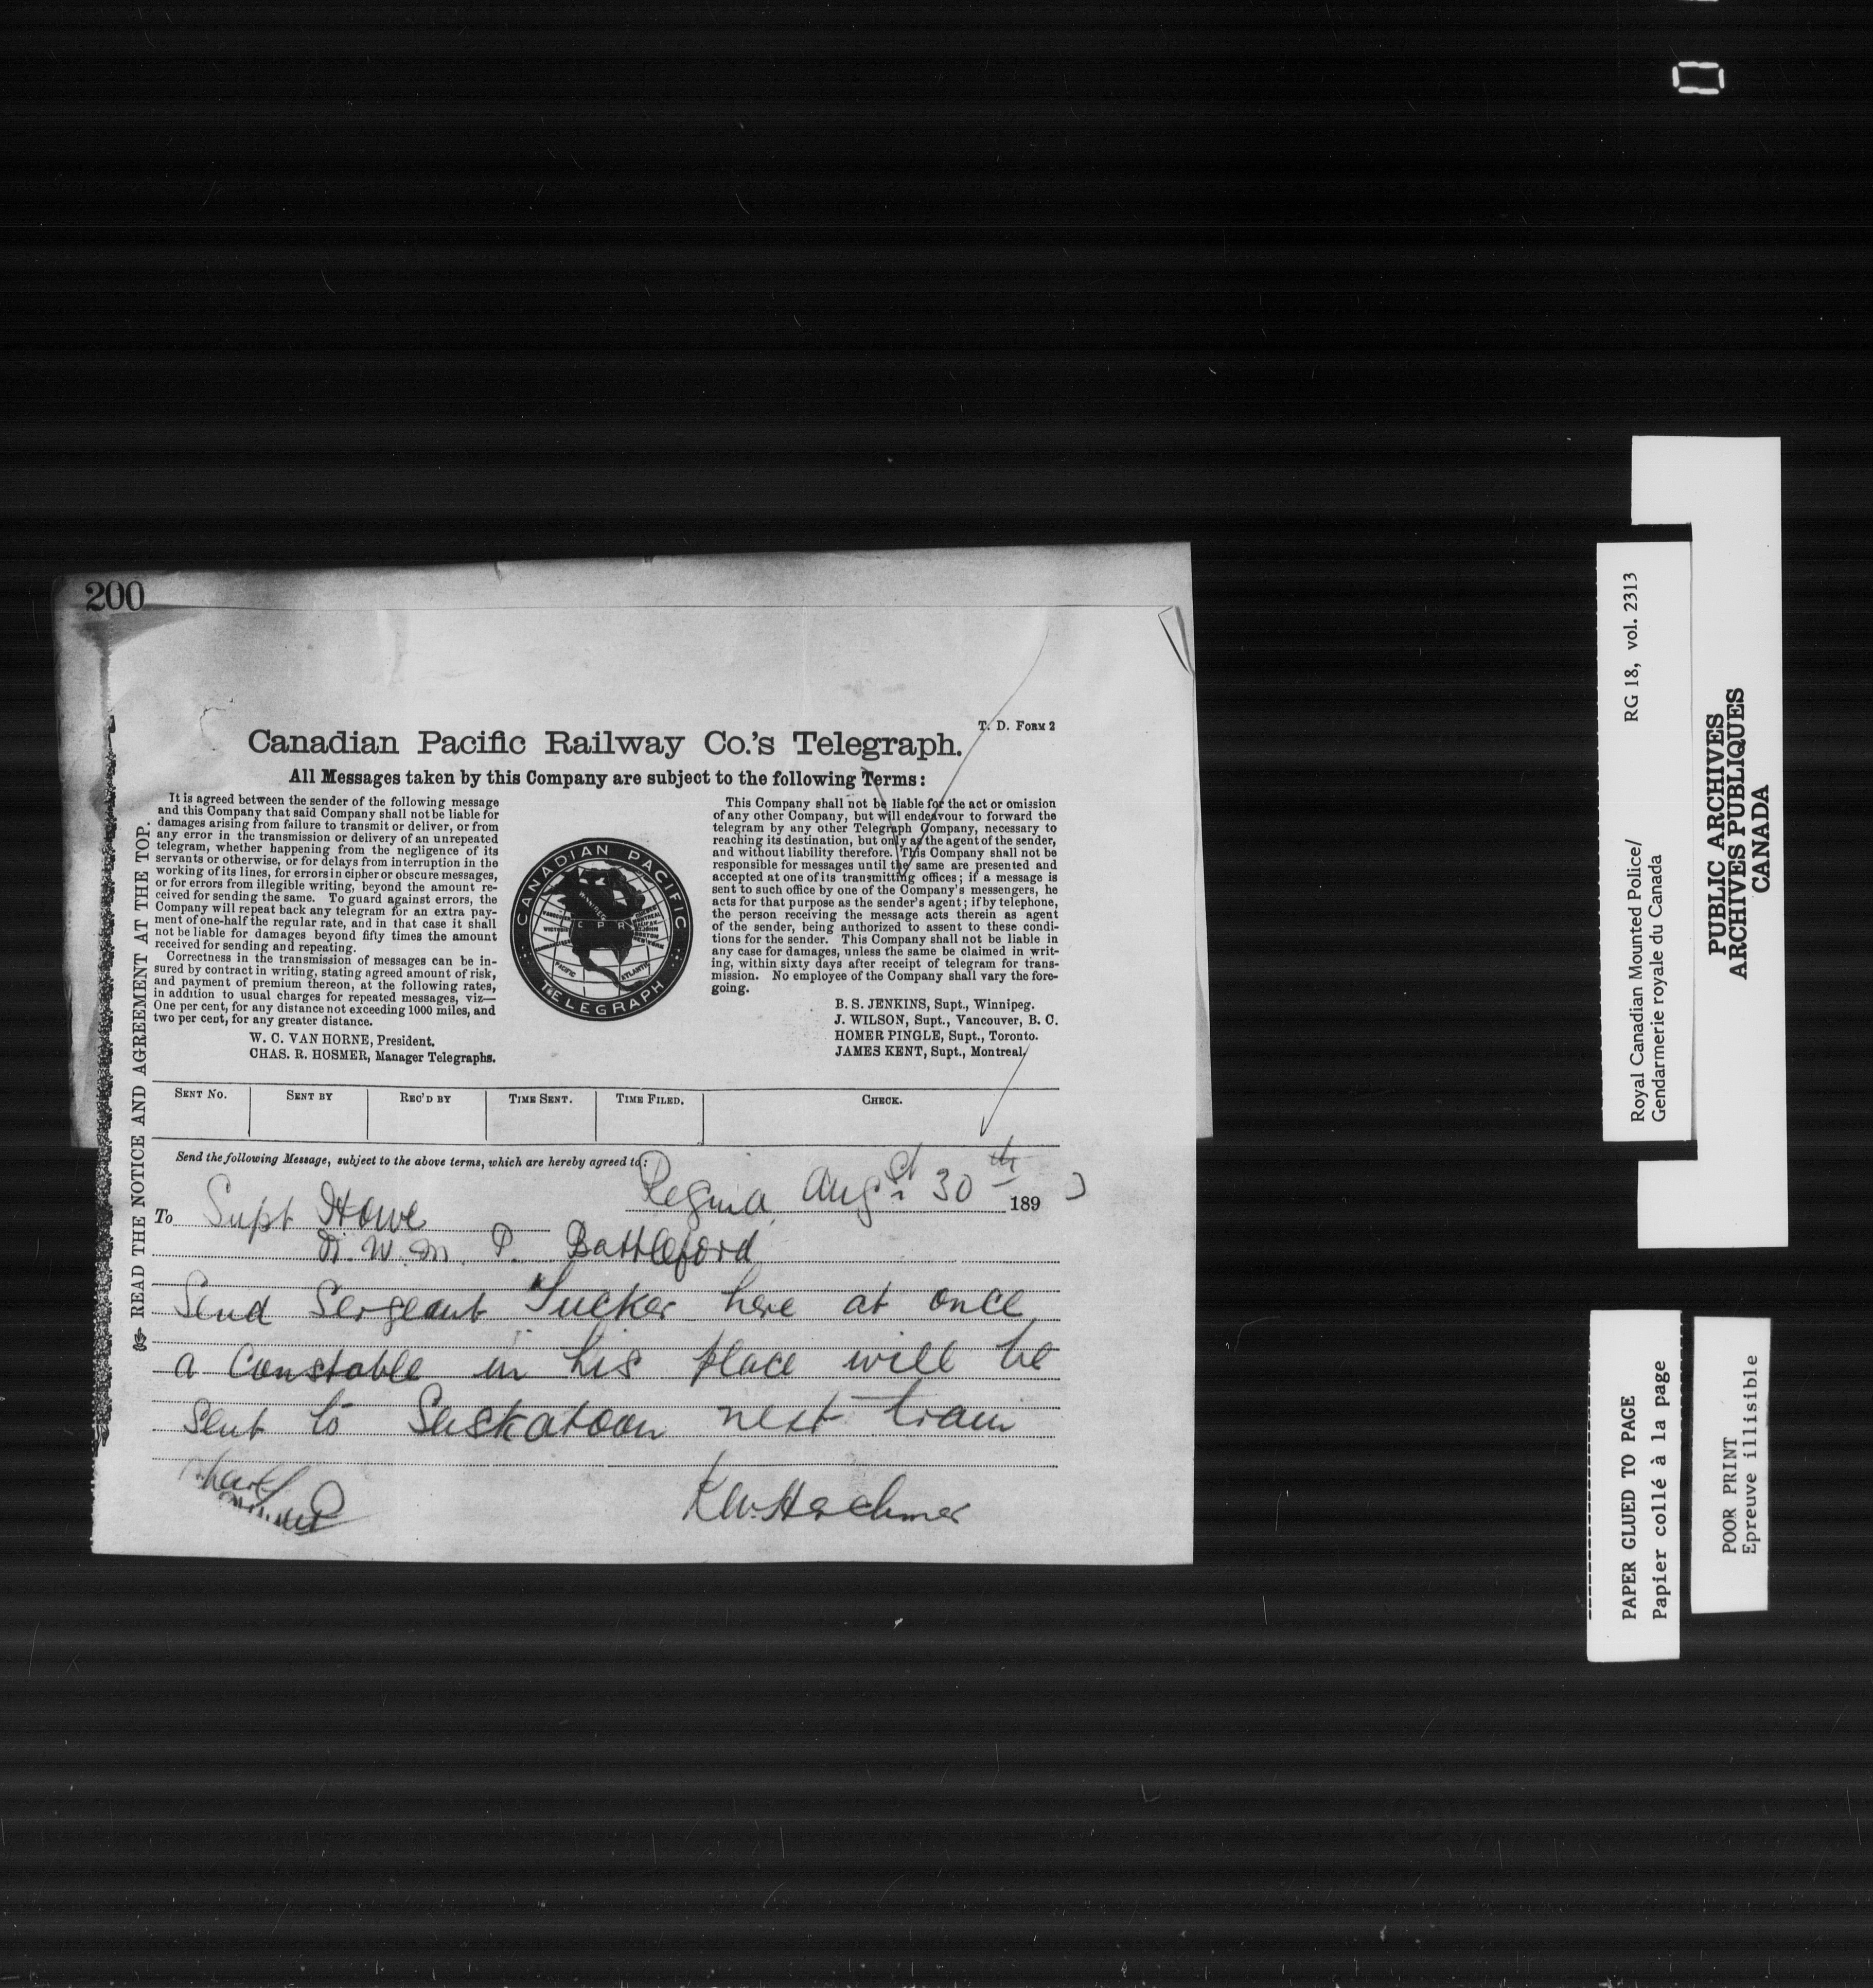 200
T. D. FORM 2
Canadian Pacific Railway Co.'s Telegraph.
All Messages taken by this Company are subject to the following Terms:
It is agreed between the sender of the following message
and this Company that said Company shall not be liable for
damages arising from failure to transmit or deliver, or from
any error in the transmission or delivery of an unrepeated
telegram, whether happening from the negligence of its
servants or otherwise, or for delays from interruption in the
working of its lines, for errors in cipher or obscure messages,
or for errors from illegible writing, beyond the amount re-
ceived for sending the same. To guard against errors, the
Company will repeat back any telegram for an extra pay-
ment of one-half the regular rate, and in that case it shall
not be liable for damages beyond fifty times the amount
received for sending and repeating.
Correctness in the transmission of messages can be in-
sured by contract in writing, stating agreed amount of risk,
and payment of premium thereon, at the following rates,
in addition to usual charges for repeated messages, viz—
One per cent, for any distance not exceeding 1000 miles, and
two per cent, for any greater distance.
W. C. VAN HORNE, President.
CHAS. R. HOSMER, Manager Telegraphs.
CANADIAN PACIFIC
WINNIPEG
C P R
PACIFIC
ATLANTIC
TELEGRAPH
This Company shall not be liable for the act or omission
of any other Company, but will endeavour to forward the
telegram by any other Telegraph Company, necessary to
reaching its destination, but only as the agent of the sender,
and without liability therefore. This Company shall not be
responsible for messages until the same are presented and
accepted at one of its transmitting offices; if a message is
sent to such office by one of the Company's messengers, he
acts for that purpose as the sender's agent; if by telephone,
the person receiving the message acts therein as agent
of the sender, being authorized to assent to these condi-
tions for the sender. This Company shall not be liable in
any case for damages, unless the same be claimed in writ-
ing, within sixty days after receipt of telegram for trans-
mission. No employee of the Company shall vary the fore-
going.
B. S. JENKINS, Supt., Winnipeg.
J. WILSON, Supt., Vancouver, B. C.
HOMER PINGLE, Supt., Toronto.
JAMES KENT, Supt., Montreal.
READ THE NOTICE AND AGREEMENT AT THE TOP.
SENT NO. SENT BY REC'D BY TIME SENT. TIME FILED. CHECK.
Send the following Message, subject to the above terms, which are hereby agreed to:
Regina Augst 30th 189
To Supt Howe
N. W. M. P. Battleford
Send Sergeant Tucker here at once
a Constable in his place will be
sent to Saskatoon next train
LW. Herchmer
RG 18, vol. 2313
Royal Canadian Mounted Police/
Gendarmerie royale du Canada
PUBLIC ARCHIVES
ARCHIVES PUBLIQUES
CANADA
PAPER GLUED TO PAGE
Papier collé à la page
POOR PRINT
Epreuve illisible